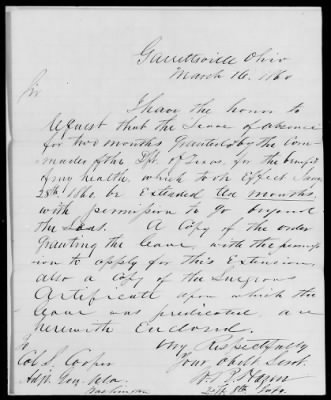 Garrettsville Ohio
March 16. 1860
Sir
I have the honor to
request that the leave of absence
for two months granted by the Com-
mander of the Dpt. of Texas, for the benefit
of my health, which took effect Jany
28th 1860 be extended ten months,
with permission to go beyond
the Seas. A copy of the order
granting the leave, with the permis-
sion to apply for this extension
also a copy of the Surgeons
Certificate upon which the
leave was predicated, are
herewith enclosed.
Very Respectfully
Your obdt Servt.
W. B. Hazen
Lt 8th Infy.
To
Col. S. Cooper
Adjt. Gen. U.S.A.
Washington